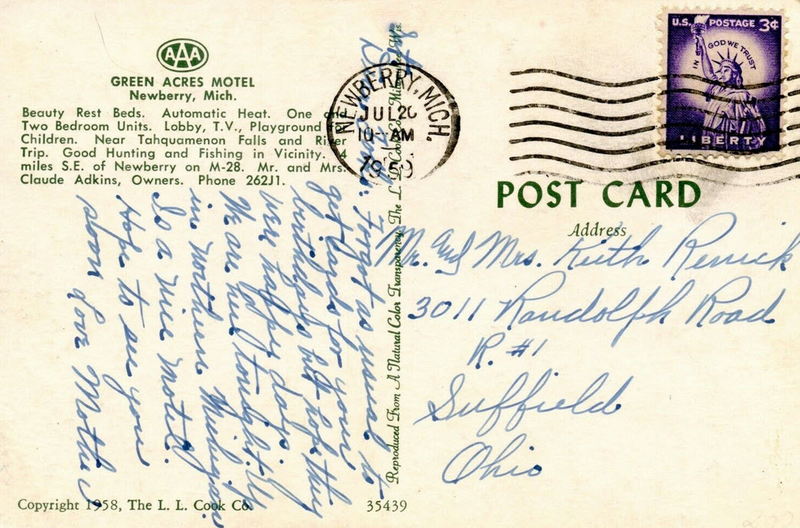 AAA
GREEN ACRES MOTEL
Newberry, Mich.
Beauty Rest Beds. Automatic Heat. One
Two Bedroom Units. Lobby, T.V., Playground
Children. Near Tahquamenon Falls and River
Trip. Good Hunting and Fishing in Vicinity. 4
miles S.E. of Newberry on M-28. Mr. and Mrs.
Claude Adkins, Owners. Phone 262J1.
Forgot as usual to
get cards for your
birthdays but hope they
were happy days.
We are
in northern Michigan
in a nice motel.
Hope to see you
soon Love Mother
Copyright 1958, The L. L. Cook Co.
35439
Reproduced From A Natural Color Transparency. The L. L. Cook Co.
NEWBERRY, MICH.
JUL 20
10 AM
1959
U.S. POSTAGE 3¢
IN GOD WE TRUST
LIBERTY
POST CARD
Address
Mr. and Mrs. Keith Renick
3011 Randolph Road
R. #1
Suffield
Ohio